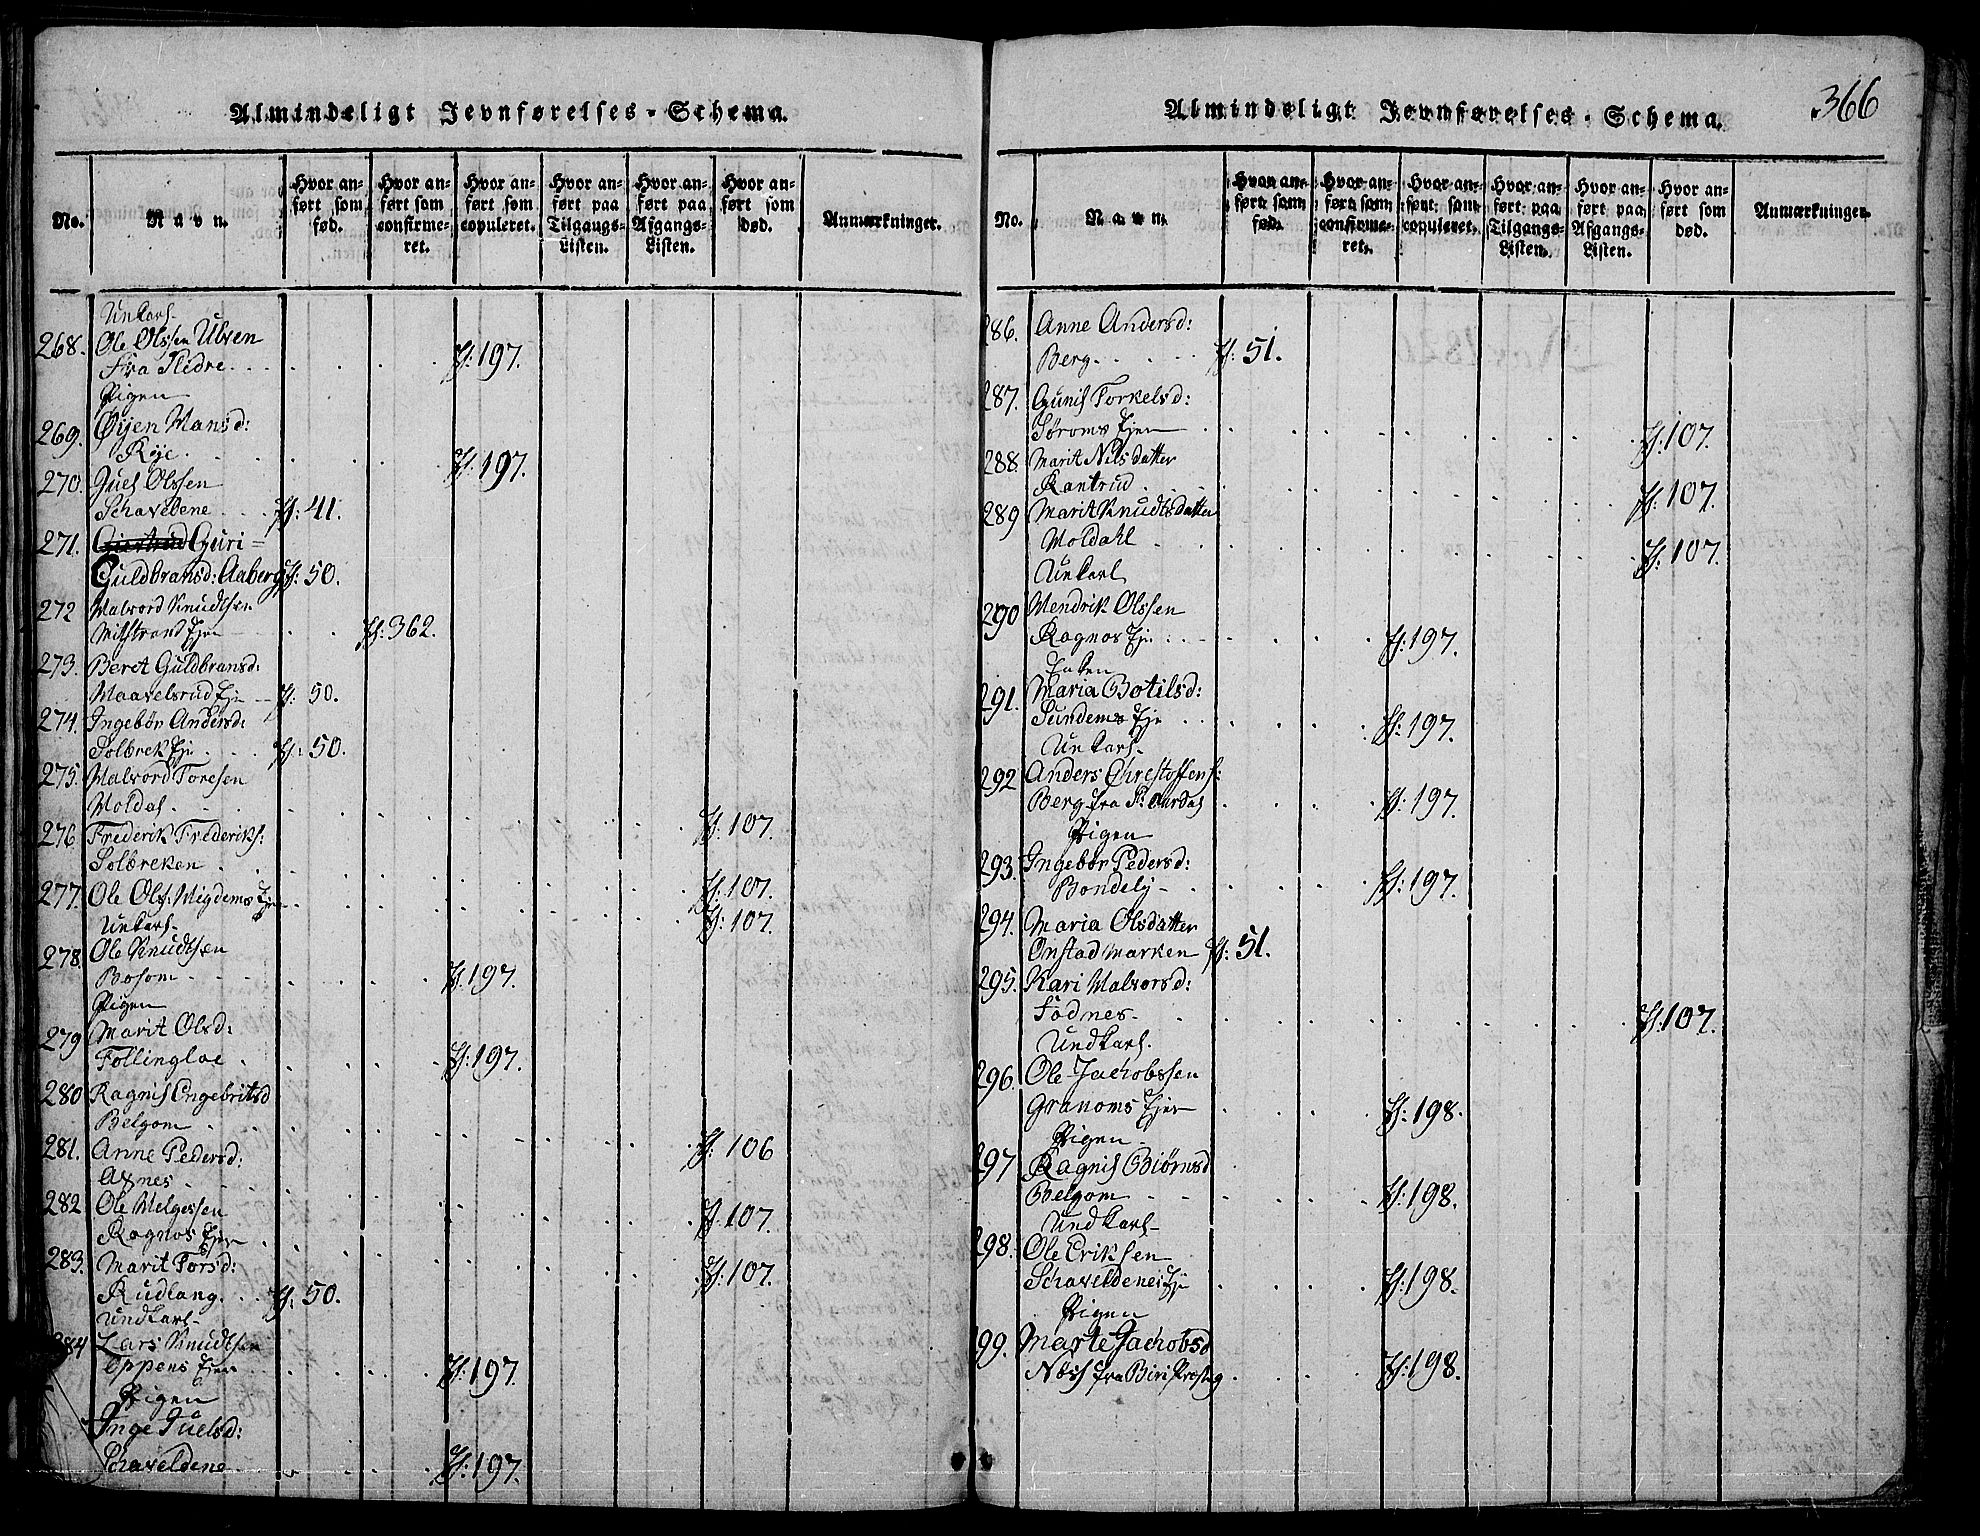 Almindeligt Jevnførelses-Schema.
No. Navn. Hvor anført som fød. Hvor anført som confirmeret. Hvor anført som copuleret. Hvor anført paa Tilgangs-Listen. Hvor anført paa Afgangs-Listen. Hvor anført som død. Anmærkninger.
Unkarl
268. Ole Olssen Ulven
Fra Slidre . . . 197.
Pigen
269. Øijen Hansd:
Røje . . . 197.
270. Juel Olssen
Schavelene . . . 41.
271. Giertrud Guri =
Guldbransd: Aaberg 50.
272 Halvord Knudtsen
Midstrand Eje . . . 362.
273. Beret Guldbransd:
Haavelsrud Eje 50.
274. Ingebør Andersd:
Solbrek Eje . . . 50.
275. Halvord Toresen
Holdal . . . 107.
276 Frederik Frederiks:
Solbreken . . . 107.
277. Ole Ols: Migdems Eje 107.
Unkarl
278. Ole Knudtsen
Bosom . . . 197.
Pigen
279 Marit Olsd:
Follingloe . . . 197.
280 Ragnil Engebritsd
Belgom . . . 106
281. Anne Pedersd:
Axnes . . . 107.
282 Ole Helgessen
Ragnos Ejer . . . 107.
283. Marit Torsd:
Rudlang . . . 50.
Undkarl
284 Lars Knudtsen
Oppens Ejer . . . 197.
Pigen
Inge Juelsd:
Schaveldene . . . 197.
Almindeligt Jevnførelses-Schema.
366
No. Navn. Hvor anført som fød. Hvor anført som confirmeret. Hvor anført som copuleret. Hvor anført paa Tilgangs-Listen. Hvor anført paa Afgangs-Listen. Hvor anført som død. Anmærkninger.
286. Anne Andersd:
Berg . . . 51.
287. Gunil Torkelsd:
Søroms Ejer . . . 107.
288. Marit Nilsdatter
Rantrud . . . 107.
289 Marit Knudtsdatter
Holdahl . . . 107.
Unkarl
290 Hendrik Olssen
Ragnos Eje . . . 197.
Enken
291. Maria Botilsd:
Sundems Eje . . . 197.
Unkarl
292 Anders Chrestoffens:
Berg fra S: Aurdal . . . 197.
Pigen
293. Ingebør Pedersd:
Bondely . . . 197.
294. Maria Olsdatter
Onstad marken 51.
295. Kari Halvorsd:
Fødnes . . . 107.
Undkarl
296. Ole Jachobssen
Granoms Ejer . . . 198.
Pigen
297 Ragnil Biørnsd
Belgom . . . 198.
Undkarl
298. Ole Eriksen
Schaveldenes Eje . . . 198.
Pigen
299. Marte Jachobsd
Nøss fra Biri Prestg . . . 198.